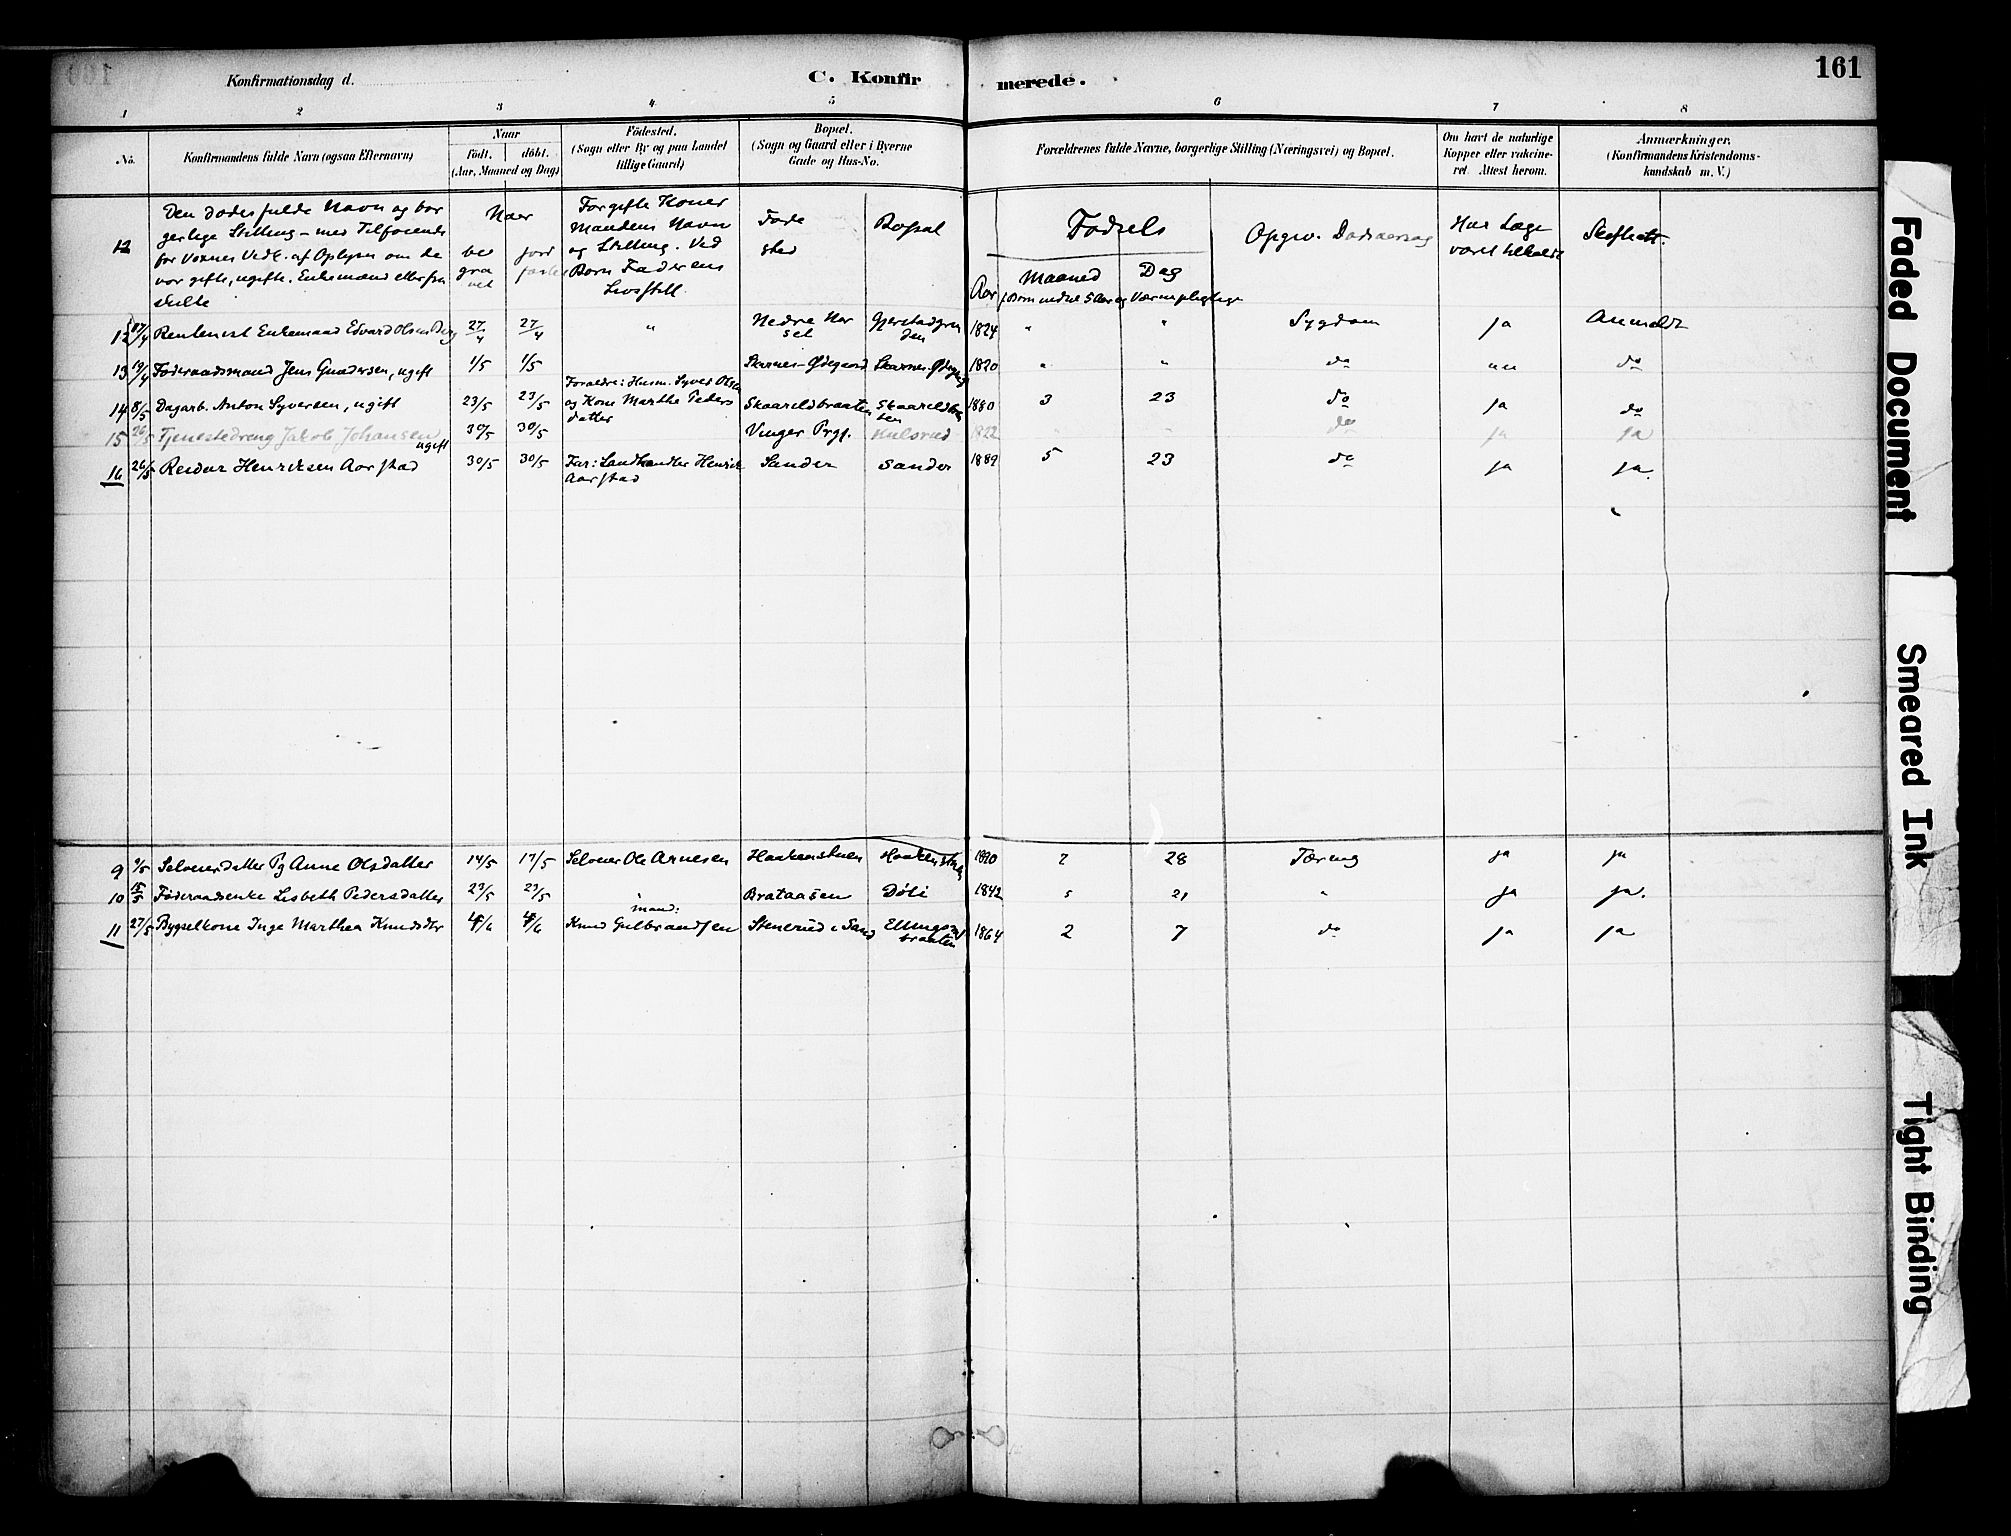 Konfirmationsdag d.
C. Konfir
merede.
161
1 2 3 4 5 6 7 8
No.
Konfirmandens fulde Navn (ogsaa Efternavn)
Naar
födt.
döbt.
(Aar, Maaned og Dag)
Födested.
(Sogn eller By og paa Landet
tillige Gaard)
Bopæl.
(Sogn og Gaard eller i Byerne
Gade og Hus-No.
Forældrenes fulde Navne, borgerlige Stilling (Næringsvei) og Bopæl.
Om havt de naturlige
Kopper eller vakcine-
ret. Attest herom.
Anmærkninger.
(Konfirmandens Kristendoms-
kundskab m. V.)
12
Den dødes fulde Navn og bor
gerlige Stilling – med Tilføiende
for Voxnes Vedk. af Oplysn om de
var gifte, ugifte, Enkemænd eller fra
skilte
Naar
be
gra
vet
jord
fæstet
For gifte Koner
Mandens Navn
og Stilling. Ved
Børn Faderens
Livsstill
Føde
sted
Bopæl
Fødsels
Aar
Maaned
Dag
Opgiv. Dødsaarsag
Har Læge
været tilkaldt
Skifteatt.
12 17/4 Rentenist Enkemand Edvard Olsen 27/4 27/4 " Nedre Har
set 1824 " " Sygdom ja Anmeldt
13 19/4 Føderaadsmand Jens Gundersen, ugift 1/5 1/5 Skarnes-Ødegaard Skarnes-Ødegaard 1820 " " do do
14 8/5 Dagarb. Anton Syversen, ugift 23/5 23/5 Forældre: Husm. Syver Olsen
og Kone Marthe Peders
datter Skaareldbraaten 1880 3 23 do ja do
15 26/5 Tjenestedreng Jakob Johansen
ugift 30/5 30/5 Vinger Prgj. Hulsrud 1822 do ja ja
16 26/5 Reidar Henriksen Aarstad 30/5 30/5 Far: Landhandler Henrik
Aarstad Sander Sander 1889 5 23 do ja ja.
9 9/5 Selveierdatter Pg Anne Olsdatter 14/5 17/5 Selveier Ole Arnesen Haakenstuen Haakenstuen 1890 2 28 Tæring ja ja
10 15/5 Føderaadsenke Lisbeth Pedersdatter 23/5 23/5 " Brataasen Døli 1842 5 21 " ja ja.
11 27/5 Bygselkone Inge Marthea Knudsdtr 4/6 4/6 mand:
Knud Gulbrandsen Stenerud i Sand Ellingsrud
braaten 1864 2 7 do ja ja
Faded Document
Smeared Ink
Tight Binding